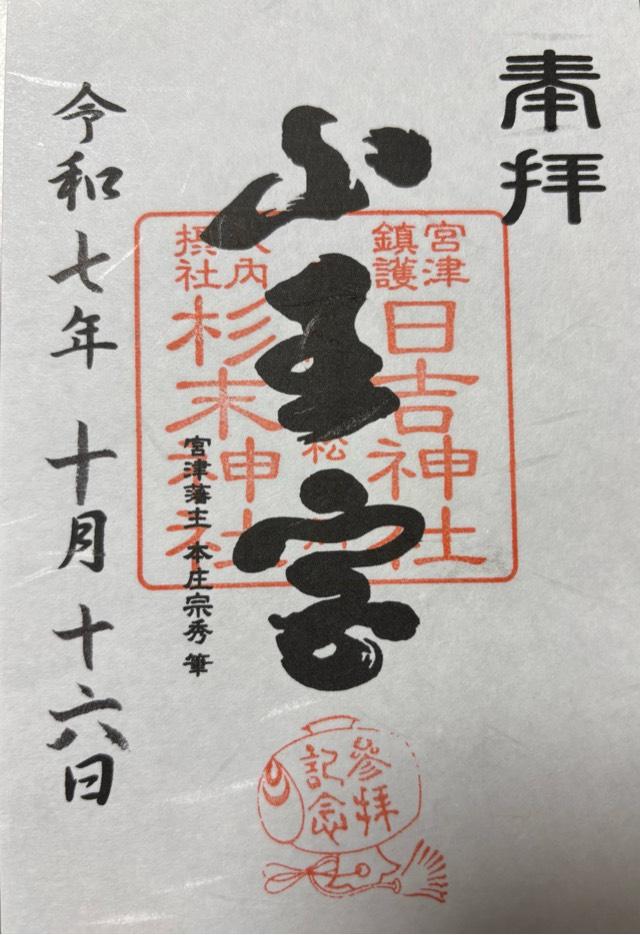 奉拝
山王宮
宮津
鎮護
日吉神社
式内
摂社
杉末神社
宮津藩主 本庄宗秀 筆
令和七年 十月 十六日
參拝
記念